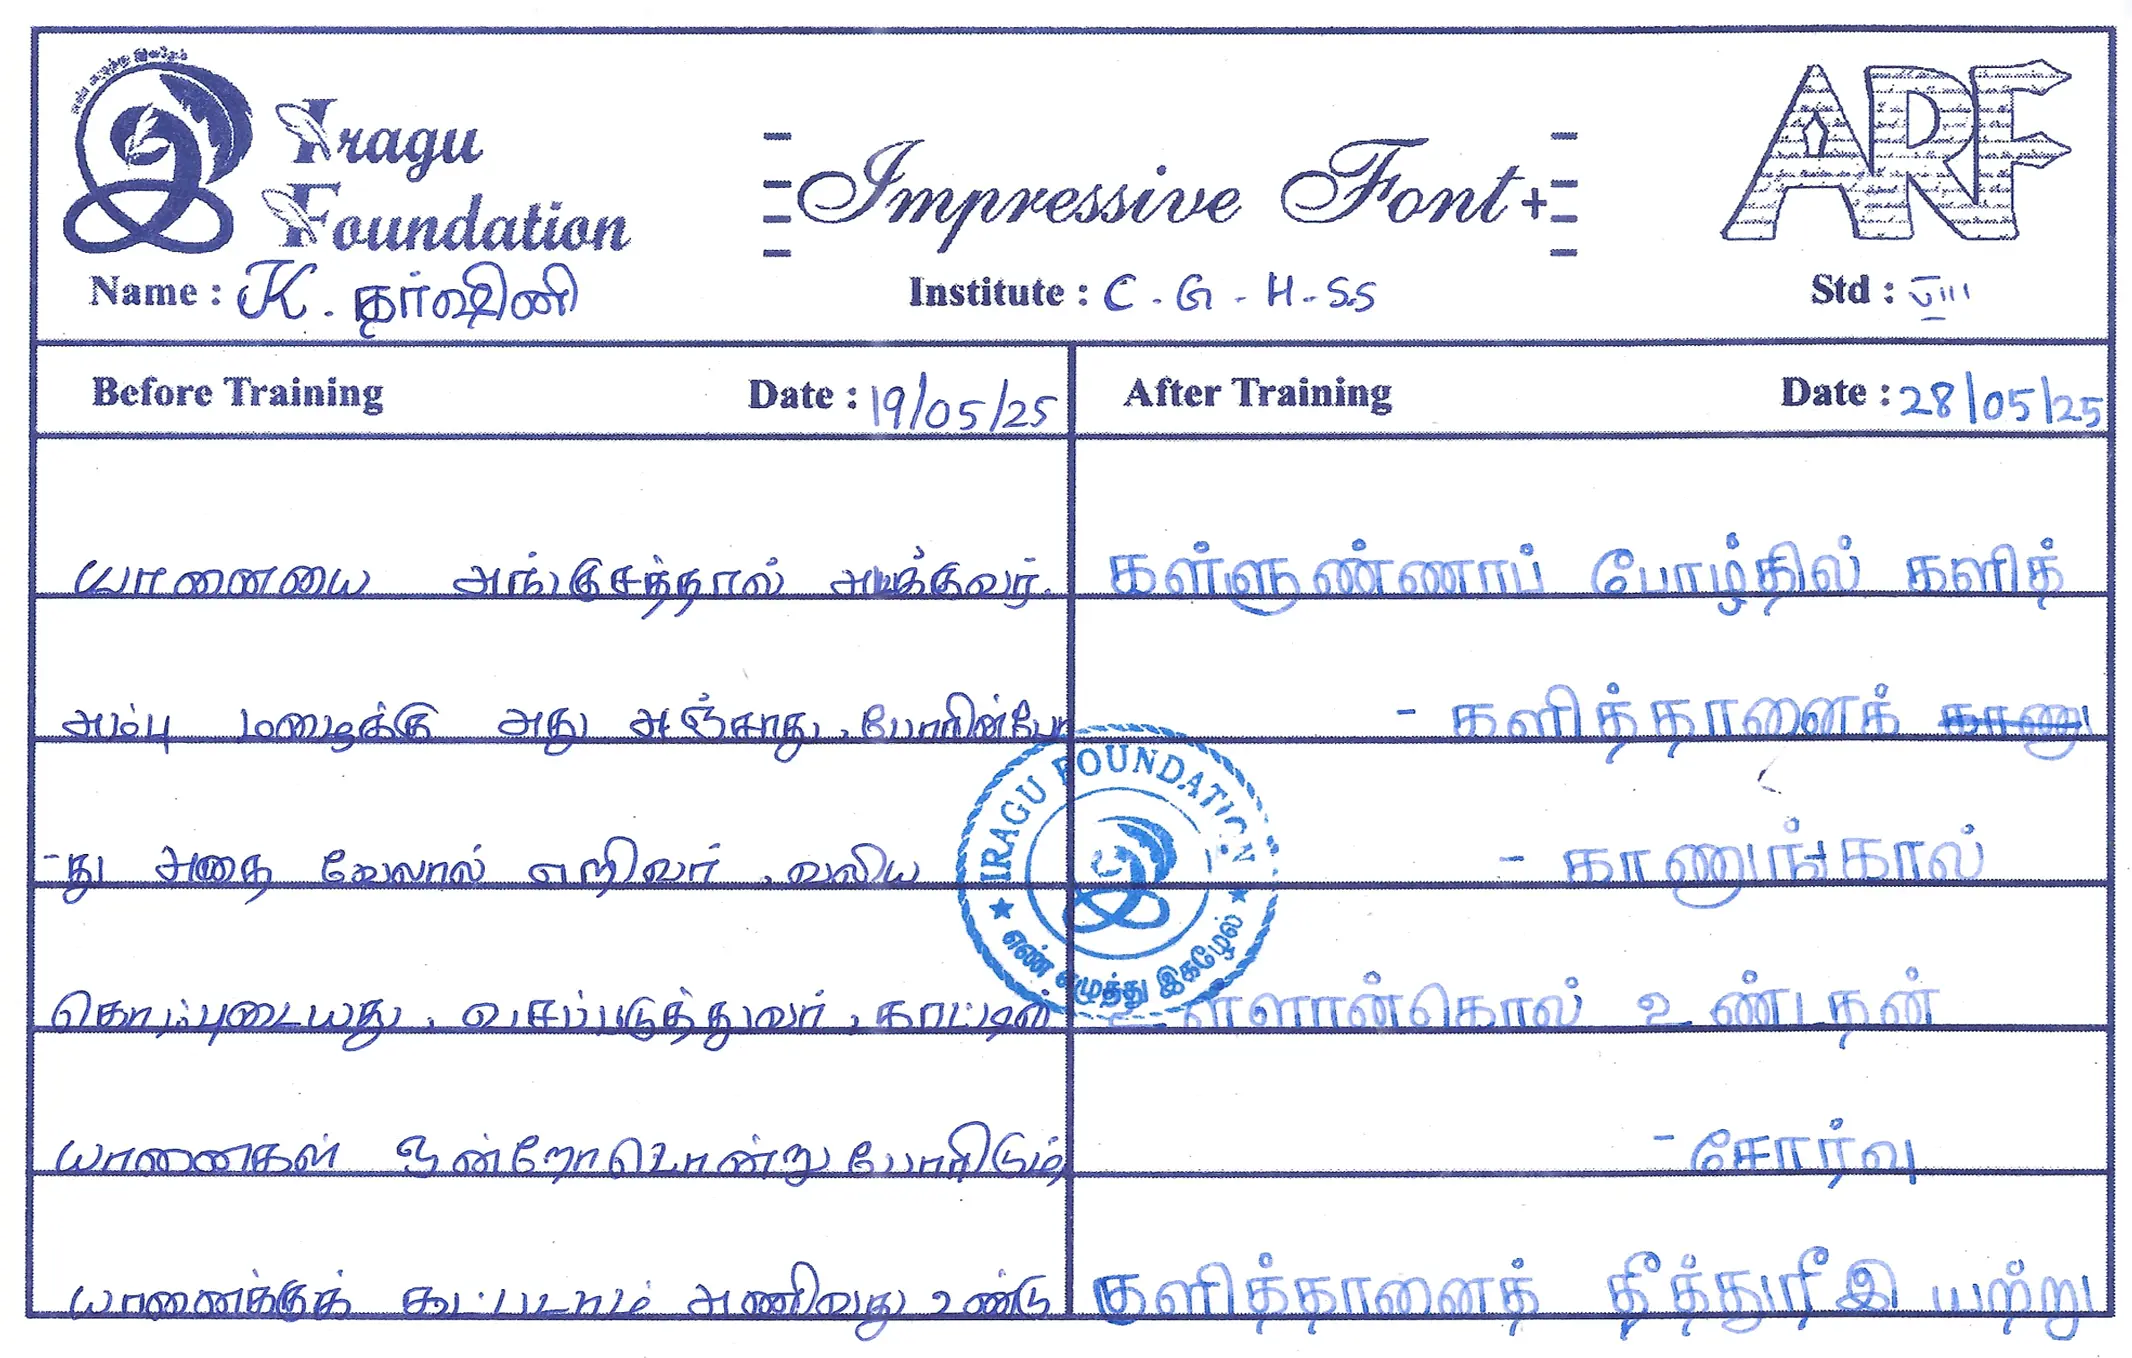 எண் எழுத்து இகழேல்
Iragu
Foundation
Impressive Font+
ARF
Name : K. தர்ஷினி
Institute : C.G.H.S.S
Std : VIII
Before Training Date : 19/05/25
After Training Date : 28/05/25
யானையை அங்குசத்தால் அடக்குவர்.
அம்பு மழைக்கு அது அஞ்சாது, போரின்போ
-து அதை வேலால் எறிவர், வலிய
கொம்புடையது, வசப்படுத்துவர், காட்டில்
யானைகள் ஒன்றோடொன்று போரிடும்
யானைக்குக் கூட்படாம் அணிவது உண்டு
கள்ளுண்ணாப் போழ்தில் களித்
- களித்தானைக் காணு
- காணுங்கால்
உள்ளான்கொல் உண்டதன்
- சோர்வு
களித்தானைத் தீத்துரீஇ யற்று
IRAGU FOUNDATION
எண் எழுத்து இகழேல்